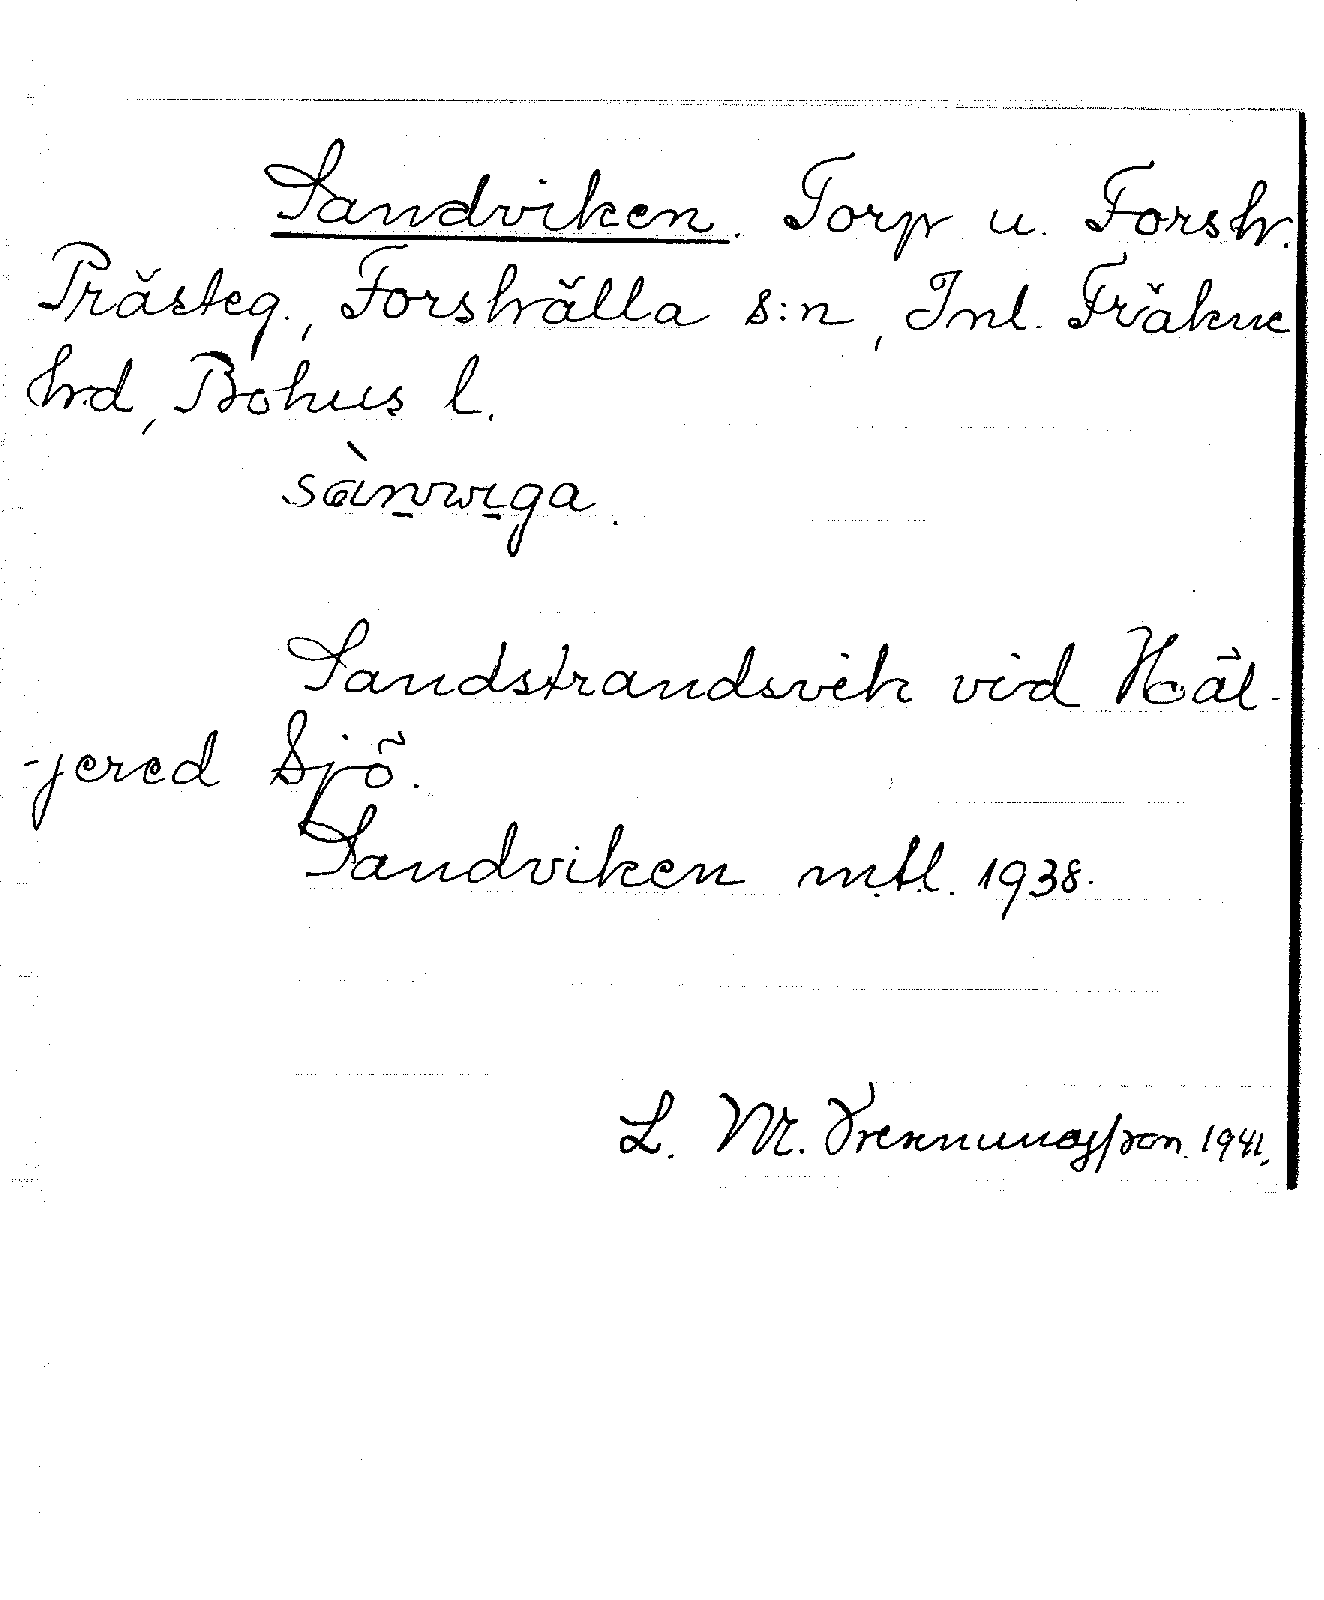 Sandviken. Torp u. Forsh.
Prästeg., Forshälla s:n, Inl. Fräkne
hd, Bohus l.
sànvıga.
Sandstrandsvik vid Häl-
-jered Sjö.
Sandviken mtl. 1938.
L. M. 1941.